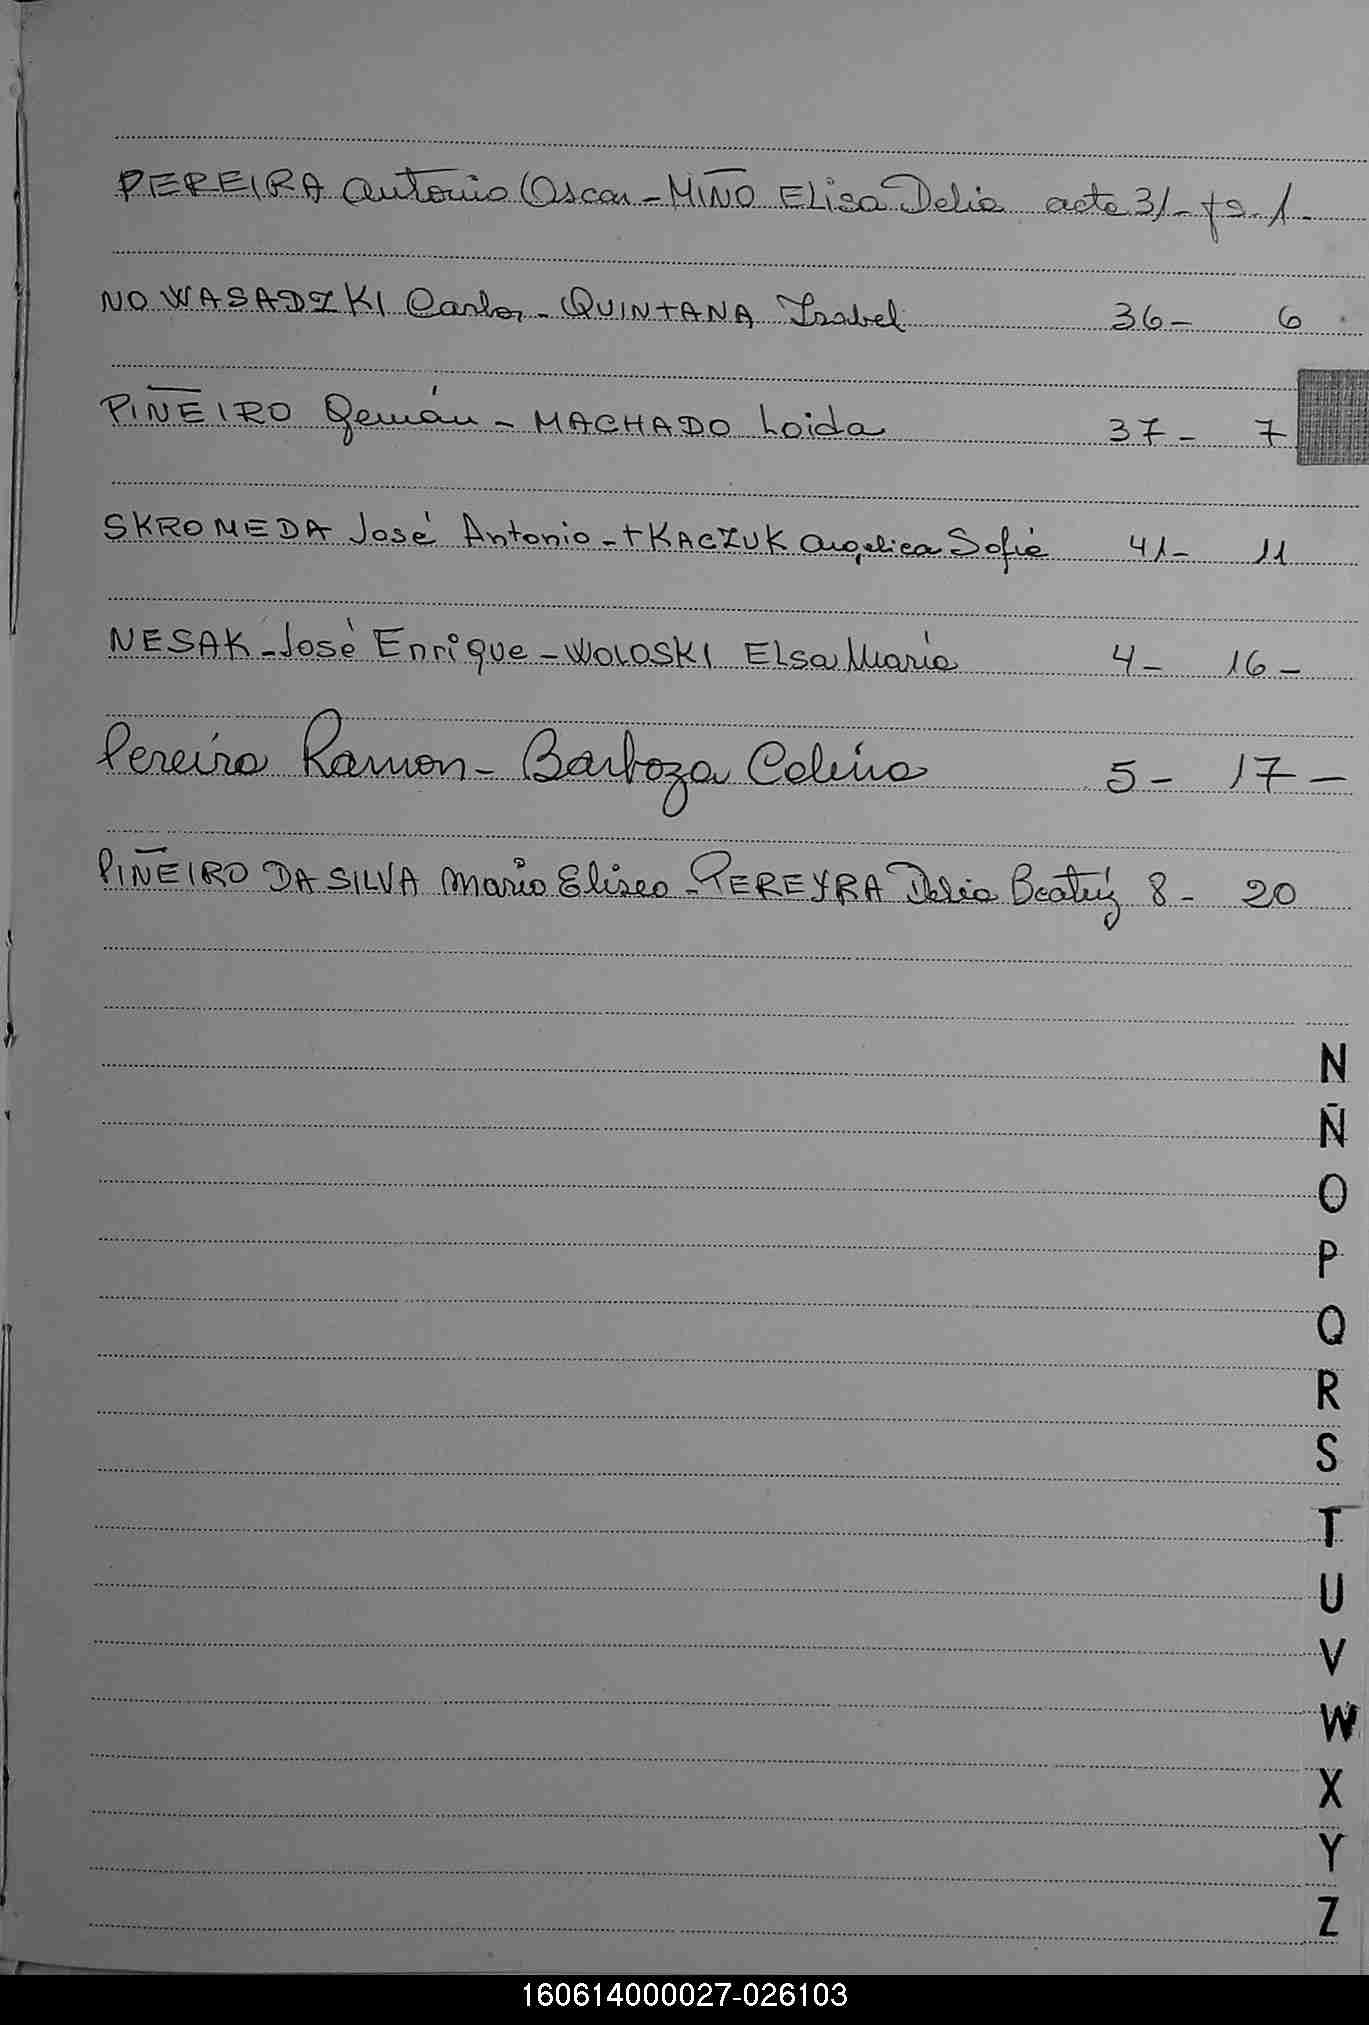 PEREIRA Antonio Oscar - MIÑO ELisa Delia acta 31 - fs. 1 -
NOWASADZKI Carlos - QUINTANA Isabel 36 - 6
PIÑEIRO Germán - MACHADO Loida 37 - 7
SKROMEDA José Antonio - TKACZUK Angelica Sofia 41 - 11
NESAK - José Enrique - WOLOSKI ELsa María 4 - 16 -
Pereira Ramon - Barboza Celina 5 - 17 -
PIÑEIRO DA SILVA Mario Eliseo - PEREYRA Delia Beatríz 8 - 20
N
Ñ
O
P
Q
R
S
T
U
V
W
X
Y
Z
160614000027-026103